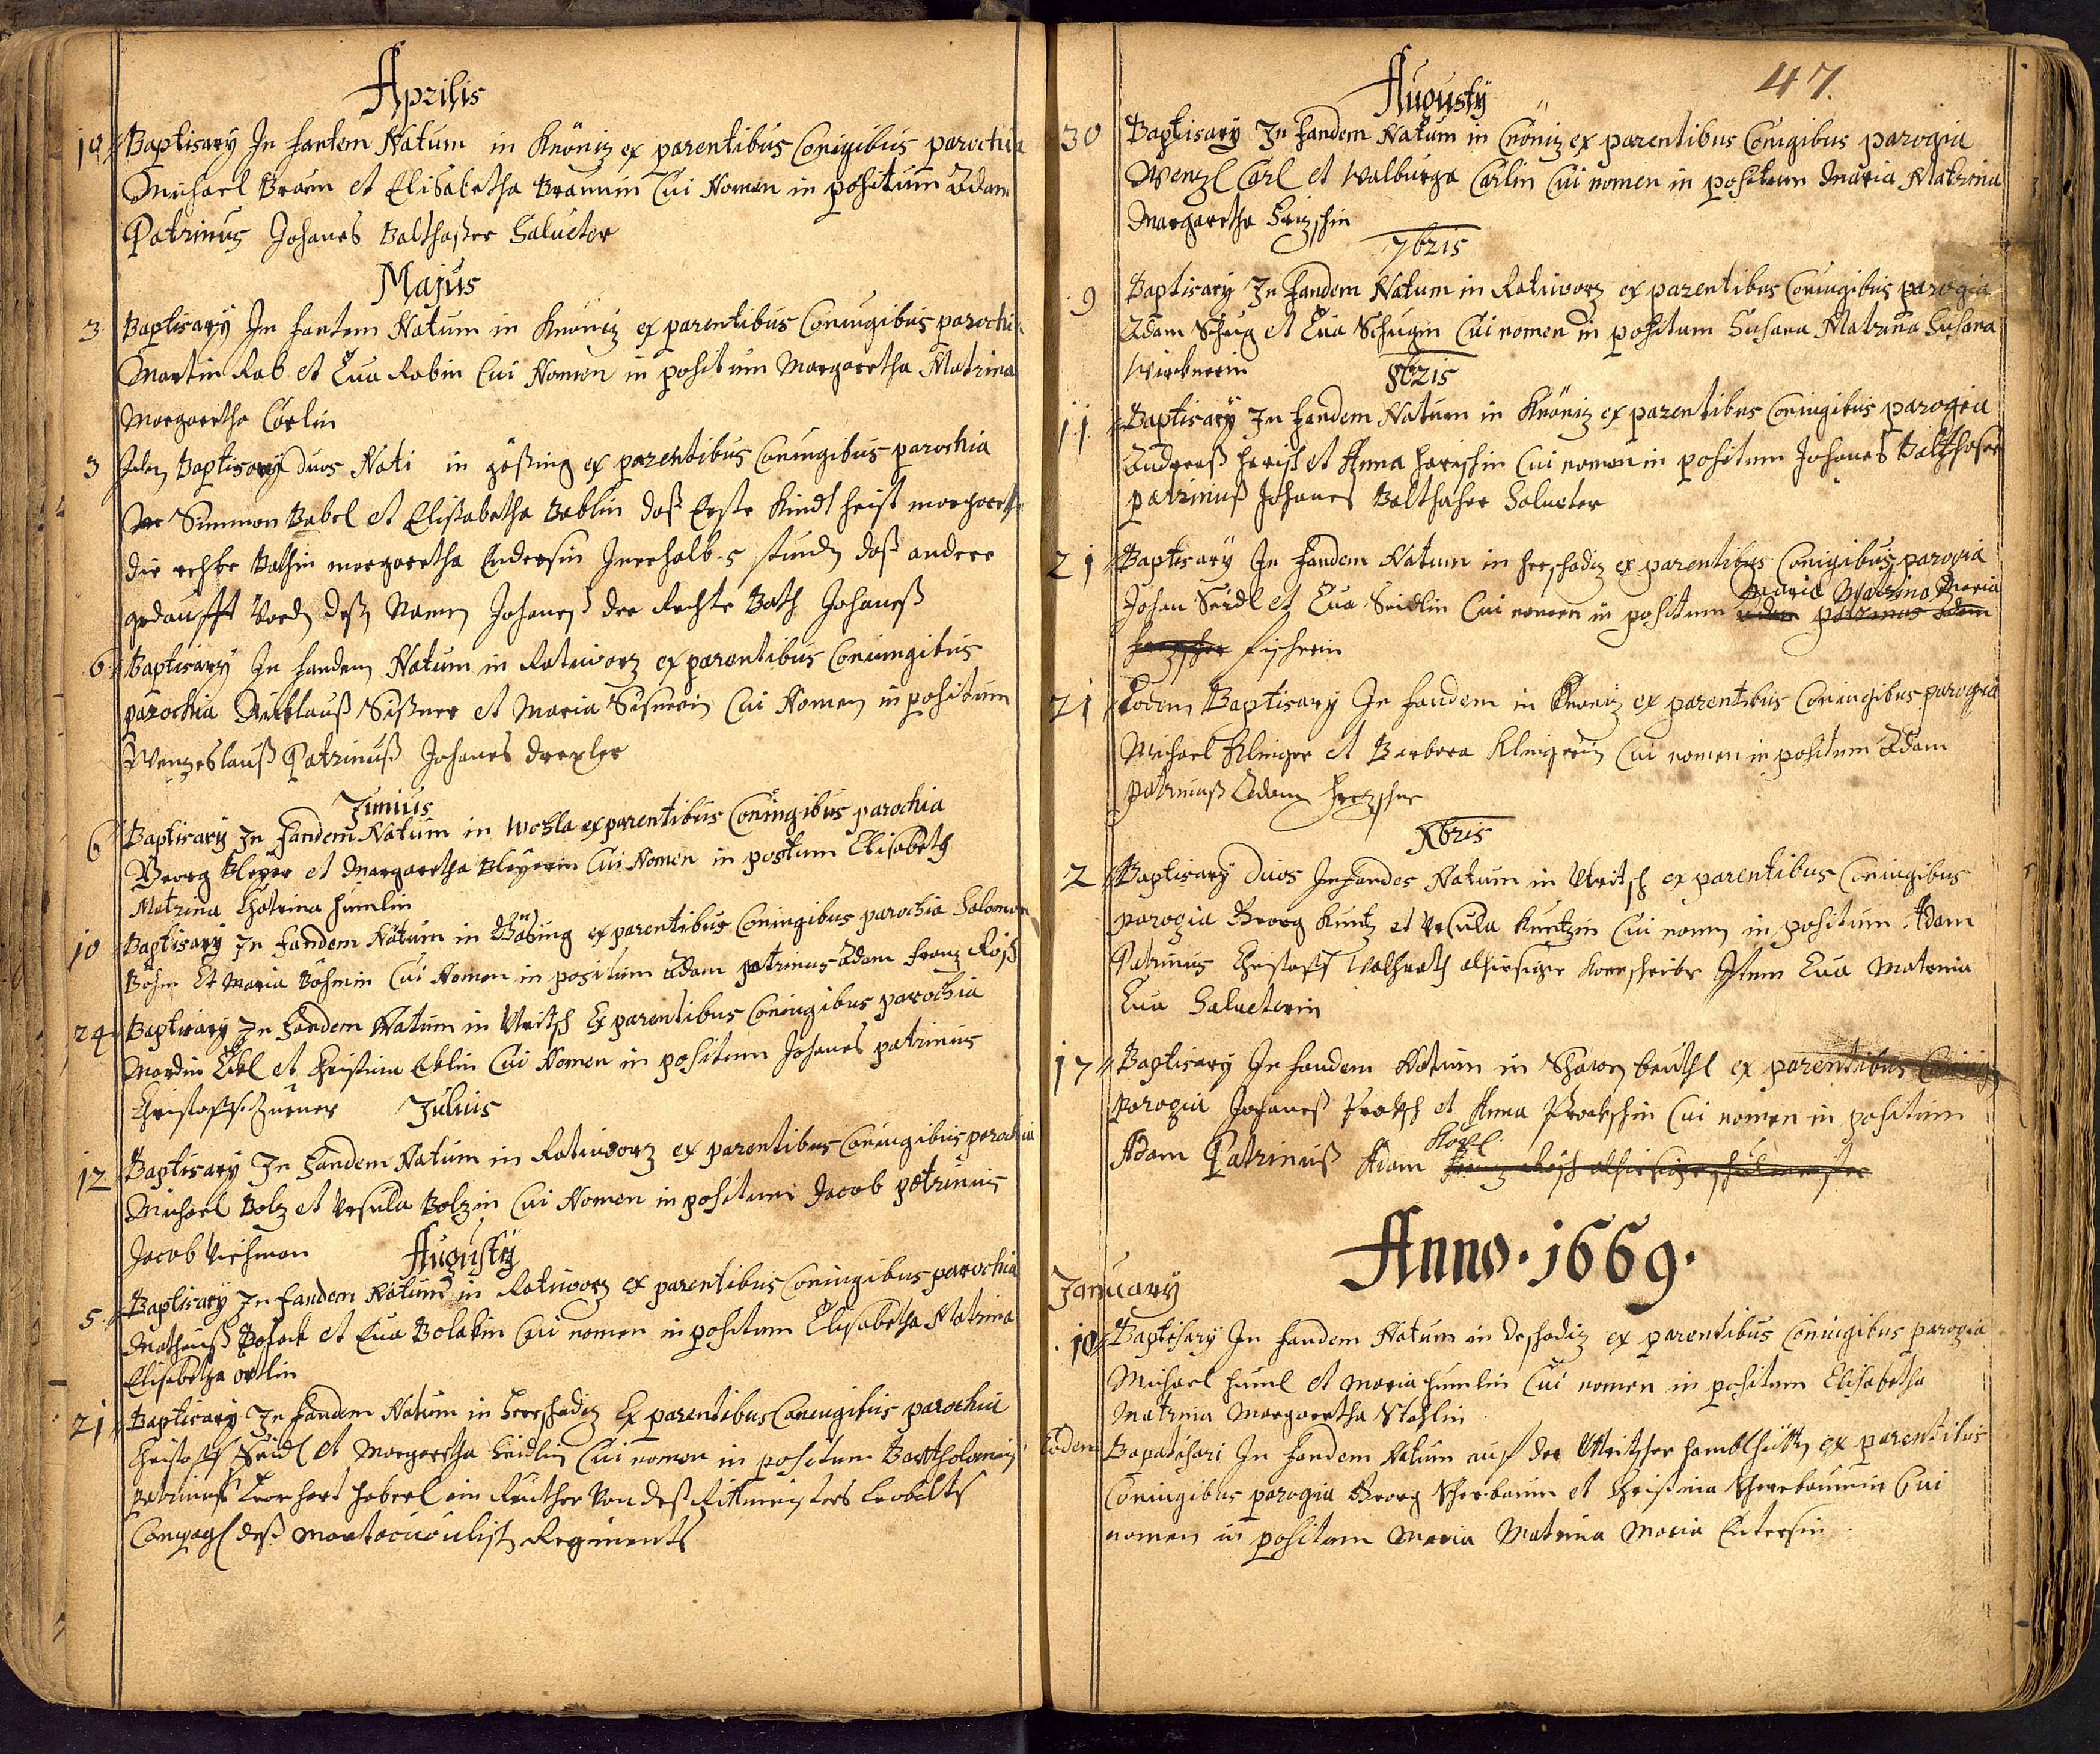 Aprilis
10 Baptisavÿ In fantem Natum in Knöniz ex parentibus Conigibus parochia
Michael Braun et Elisabetha Braunin Cui Nomen in positum Adam
Patrinus Johanes Balthaßer Salueter
Majus
3 Baptisavÿ In fantem Natum in Knöniz ex parentibus Coniugibus parochi
Martin Rab et Eua Rabin Cui Nomen in positum Margaretha Matrina
Margaretha Carlin
3 Baptisavÿ duos Nati in gößing ex parentibus Coniugibus parochia
Simmon Babel et Elisabetha Bablin daß Erste Kindt heist margaret
die rechte Bathin margaretha Endersin Inerhalb 5 stundn daß andere
gedaufft Word deß Namen Johaneß der Rechte Bath Johaneß
6 Baptisavÿ In fandem Natum in Ratiworz ex parentibus Coniungibus
parochia Nicklauß Sißner et Maria Sisnerin Cui Nomen in positum
Wenzeslauß Patrinuß Johanes Drexler
Junius
6 Baptisavÿ In fandem Natum in Wohla ex parentibus Coningibus parochia
Georg Bleyer et Margaretha Bleyerin Cui Nomen in postum Elisabeth
Matrina Chatrina Humlin
10 Baptisavÿ In fandem Natum in Gösing ex parentibus Coningibus parochia Salomon
Böhm Et Maria Böhmin Cui Nomen in positum Adam patrinus Adam Franz Rösch
24 Baptisavÿ In fandem Natum in Utitsch Ex parentibus Coningibus parochia
Mardin Eckl et Christina Ecklin Cui Nomen in positum Johanes patrinus
Christoff Zurner
Julius
12 Baptisavÿ In fandem Natum in Ratiworz ex parentibus Coningibus parochia
Michael Bolz et Ursula Bolzin Cui Nomen in positum Jacob patrinus
Jacob Viehman
Augustÿ
5 Baptisavÿ In fandem Natum in Ratiworz ex parentibus Coningibus parochia
Matheuß Bolack et Eua Bolakin Cui nomen in positum Elisabetha Matrina
Elisabetha örtlin
21 Baptisavÿ In fandem Natum in Herschadiz Ex parentibus Coniugibus parochia
Christoff Seidl et Margaretha Seidlin Cui nomen in positum Bartholomeus
patrinuß Leonhart Haberl ein Reuther Von deß Rittmeisters Leobelts
Compagl deß Montecuculisch Regiments
47.
Augustÿ
30 Baptisavÿ In fandem Natum in Cnöniz ex parentibus Conigibus parogia
Wenzl Carl et Walburga Carlin Cui nomen in positum Maria Matrina
Margaretha
7bris
9 Baptisavÿ In fandem Natum in Ratiworz ex parentibus Coniugibus parogia
Adam Schug et Eua Schugin Cui nomen in positum Susana Matrina Susana
Wircknerin
8bris
11 Baptisavÿ In fandem Natum in Knöniz ex parentibus Coningibus parogia
Andreaß Harisch et Anna Harischin Cui nomen in positum Johanes Balthaser
patrinuß Johanes Balthaser Salueter
21 Baptisavÿ In fandem Natum in Herschadiz ex parentibus Conigibus parogia
Johan Seidl et Eua Seidlin Cui nomen in positum Maria Matrina Maria
Adam patrinus Adam
Fischerin
21 Eodem Baptisavÿ In fandem in Knöniz ex parentibus Coningibus parogia
Michael Klinger et Barbara Klingerin Cui nomen in positum Adam
patrinuß Adam
Xbris
2 Baptisavÿ duos Infandes Natum in Utitsch ex parentibus Coningibus
parogia Georg Kuntz et Ursula Kuntzin Cui nomen in positum Adam
Patrinus Christoff Walhrath alhiesiger Kornschreiber Item Eua Matrina
Eua Salueterin
17 Baptisavÿ In fandem Natum in ex parentibus Coniugi
parogia Johaneß Proksch et Anna Prokschin Cui nomen in positum
Adam Patrinuß Adam
Franz Rösch alhiesiger schulmeister
Anno 1669.
Januarÿ
10 Baptisavÿ In fandem Natum in Deschadiz ex parentibus Coniugibus parogia
Michael Huml et Maria Humlin Cui nomen in positum Elisabetha
Matrina Margaretha Stahlin
Eodem Bapatisavi In fandem Natum auf der Utitscher ex parentibus
Coniugibus parogia Georg Scherbaum et Christina Scherbaumin Cui
nomen in positum Maria Matrina Maria Entersin